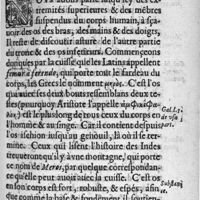 O V s auons parlé iusqu'icy des ex-
tremités superieures & des mẽbres
suspendus du corps humain, à sça-
uoir des os des bras, des mains & des doigts,
Il reste de discourir asteure de l'autre partie
du tronc & des os inferieurs. Commençons
doncques par la cuisse que les Latins appellent
femur à ferendo, qui porte tout le fardeau du
corps, les Grecs le nomment C'est l'os
qui auec ses deux bouts ressemblans deux te-
stes (pourquoy Aristote l'appelle
) est le plus long de tous ceux du corps en
l'homme & au singe. Car il contient depuis
l'os ischion iusqu'au genouil, qui est toute la
cuisse. Ceux qui lisent l'histoire des Indes
trouueront qu'il y a vne montagne, qui porte
ce nom de Meros, par quelque correspondan-
ce qu'elle peut auoir auec la cuisse. C'est os
en son corps est fort, robuste, & espés, afin
que comme la base & fondement, il soustien-
Gal. l. 3.
de vsu
part.
Substanc